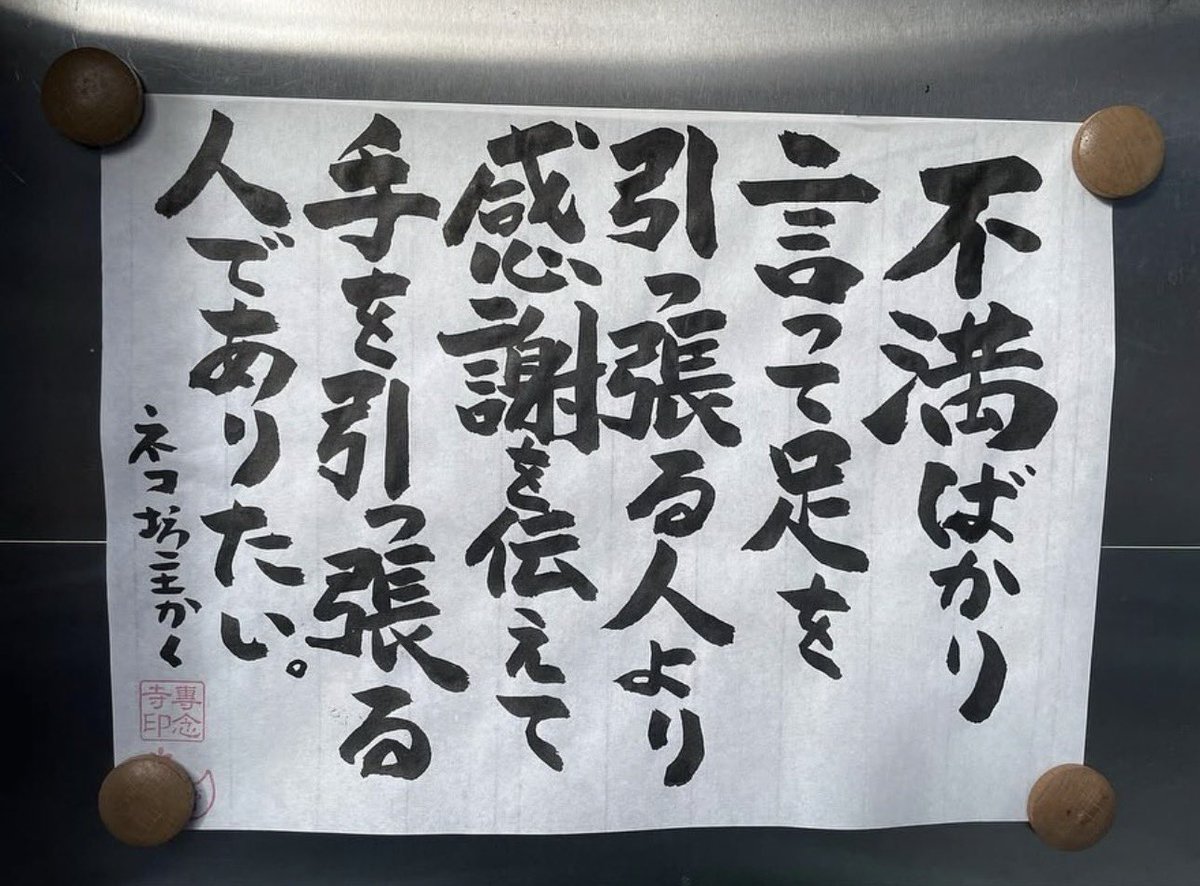 不満ばかり
言って足を
引っ張る人より
感謝を伝えて
手を引っ張る
人でありたい。
ネコ坊主かく
專念
寺印